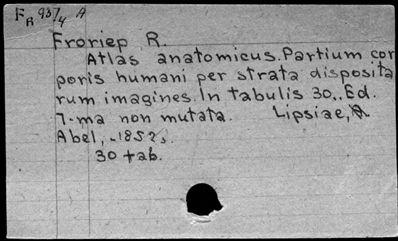 FR 937/4 A
Froriep R.
Atlas anatomicus. Partium cor
poris humani per strata disposita
rum imagines. In tabulis 30. Ed.
7-ma non mutata. Lipsiae, A.
Abel, 1852.
30 tab.